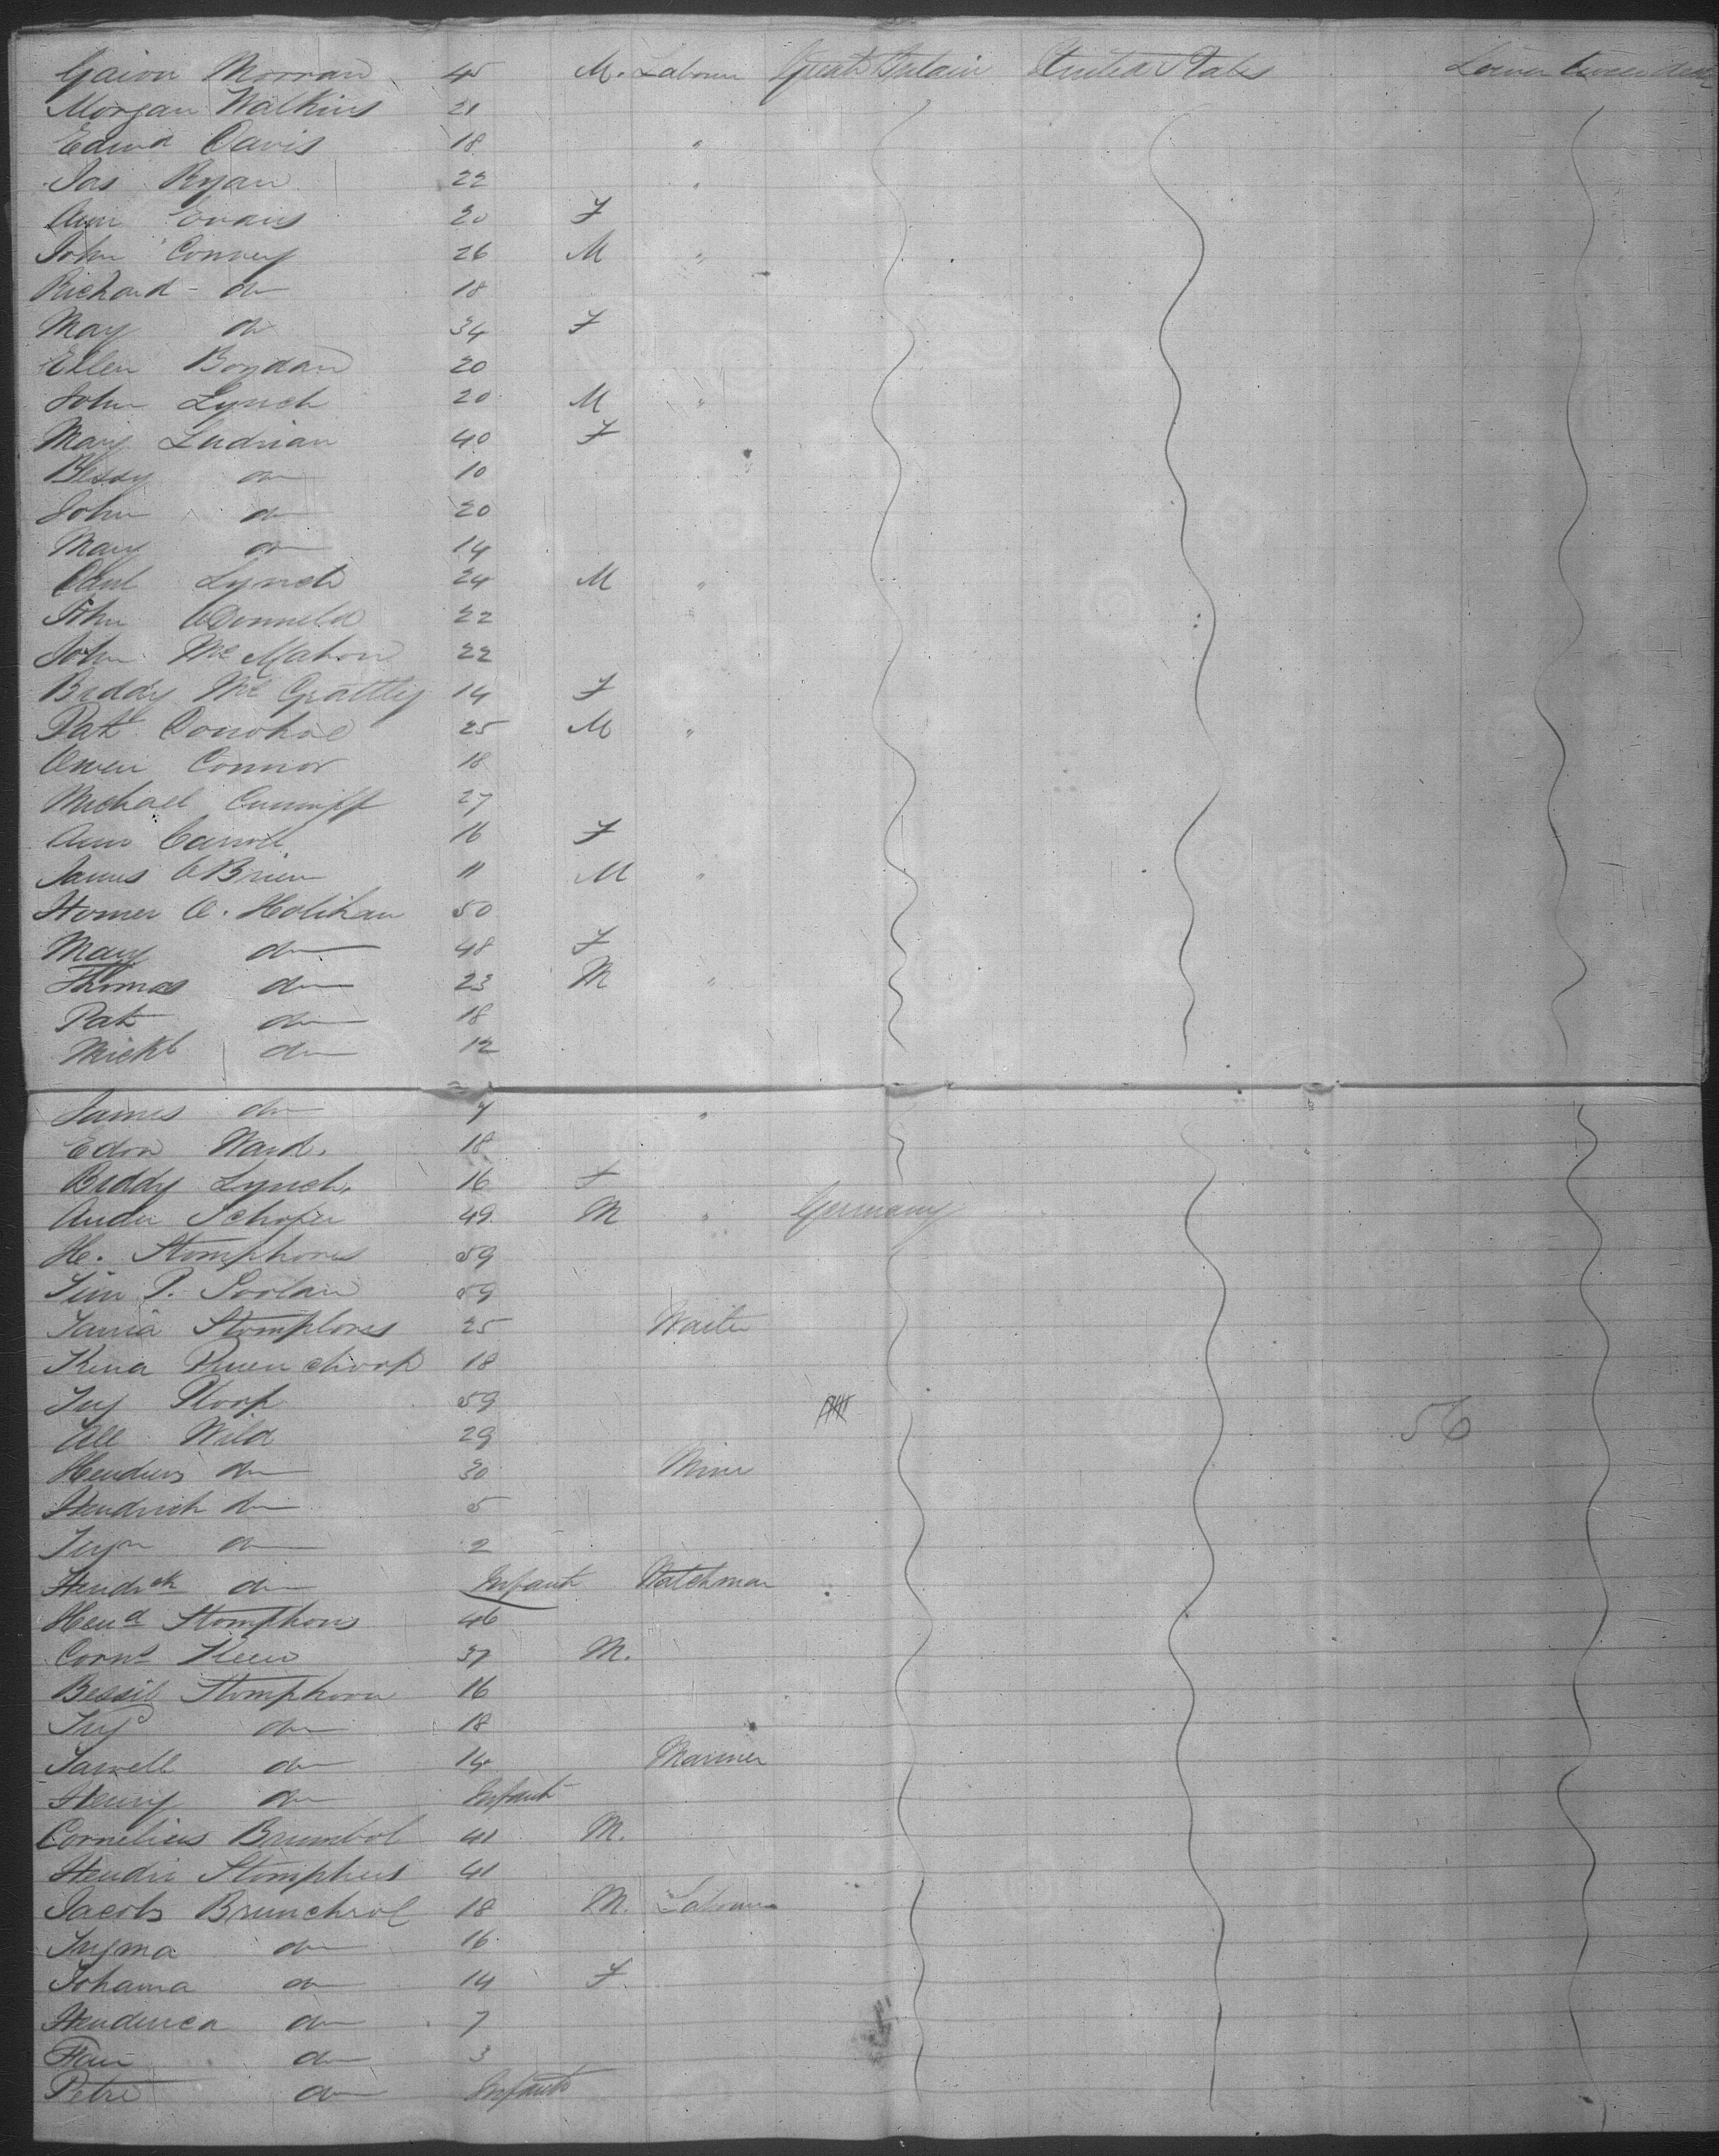 Gaion Morran 45 M. Labourer Great Britain United States Lower tween deck
Morgan Walkins 21
Edwd Davis 18 "
Jas Ryan 22 "
Ann Evans 20 F
John Convey 26 M "
Richard do 18
May do 34 F
Ellen Boydan 20
John Lynch 20 M "
Mary Ludnan 40 F
Bessy do 10
John do 20
Mary do 14
Paul Lynch 24 M "
John ODonneld 22
John Mc Mahon 22
Biddy Mc Grattty 14 F
Pat Donohoe 25 M "
Owen Connor 18
Michael Cunniff 27
Ann Carroll 16 F
James OBrien 11 M "
Homer O. Holihan 50
Mary do 48 F
Thomas do 23 M "
Pat do 18
Michl do 12
James do 7 "
Edwn Ward. 18
Biddy Lynch. 16 F
Schofer 49 M " Germany
He. Stomphores 59
Jim P. 59
Stomplores 25 Waiter
18
59 56
Wild 29
do 30 Miner
Hendrich do 5
do 2
Hendrck do Infant Watchman
Hend Stomphons 46
Corns 37 M.
Bessie Stomphorn 16
do 18
do 14 Mariner
Henry do Infant
Cornelius Brumbol 41 M.
Hendri Stomphus 41
Jacob Brunchrol 18 M. Labourer
do 16
Johanna do 14 F.
Henderica do 7
do 3
Petre do Infant